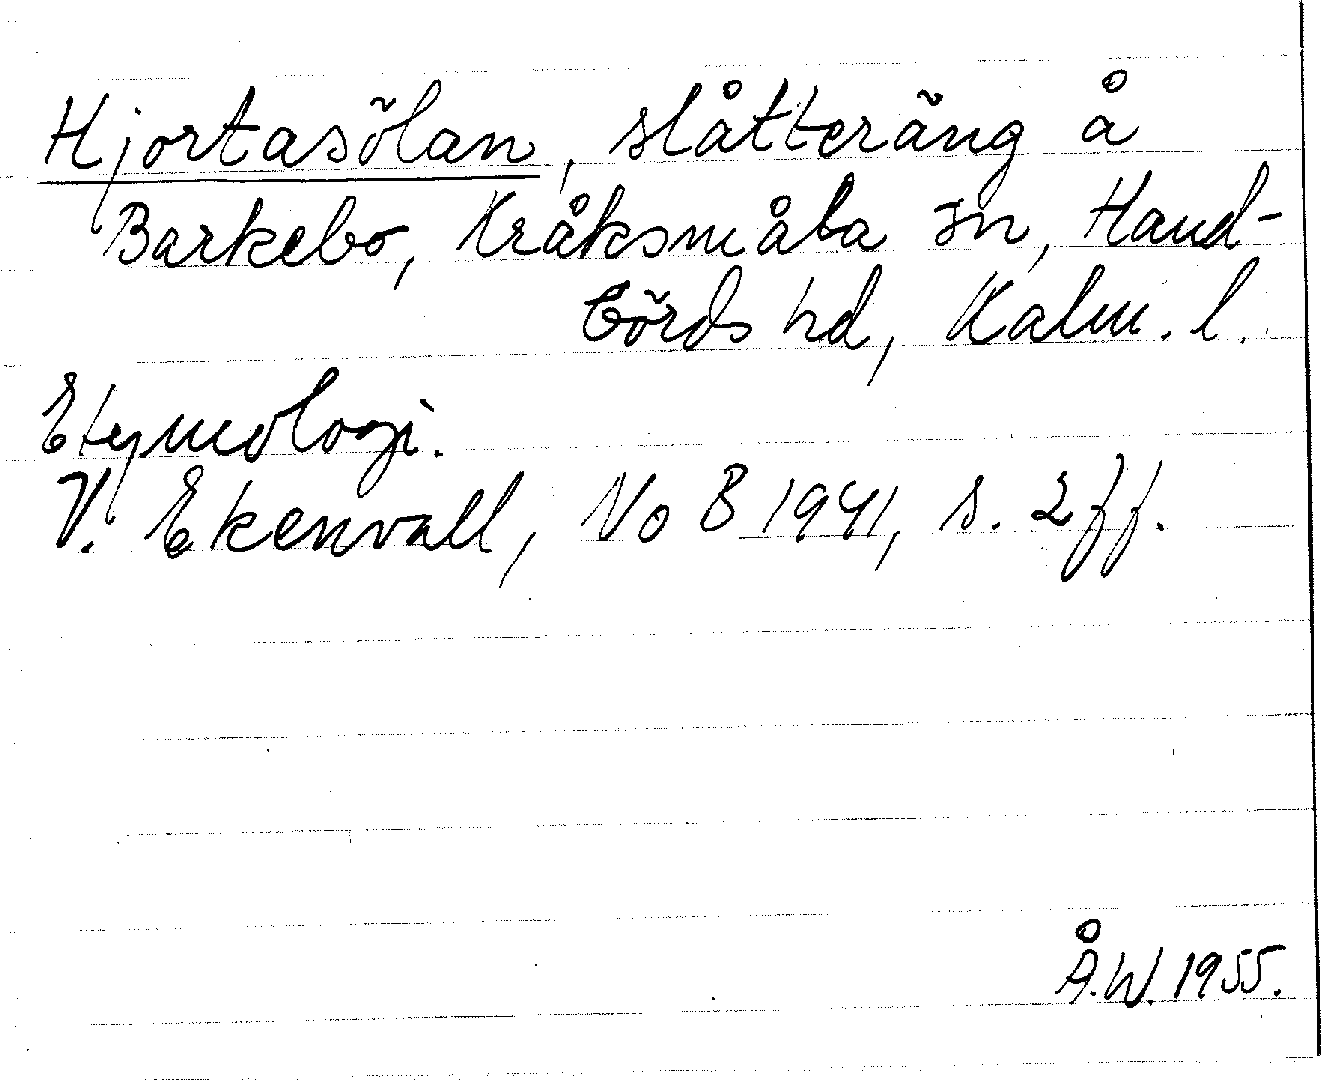 Hjortasölan, slåtteräng å
Barkebo, Kråksmåla sn, Hand-
börds hd, Kalm. l.
Etymologi.
V. Ekenvall, No B 1941, s. 2 ff.
Å.W. 1955.